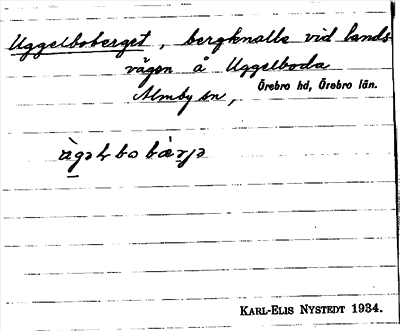 Uggelboberget, bergknalle vid lands-
vägen å Uggelboda
Almby sn, Örebro hd, Örebro län.
KARL-ELIS NYSTEDT 1934.